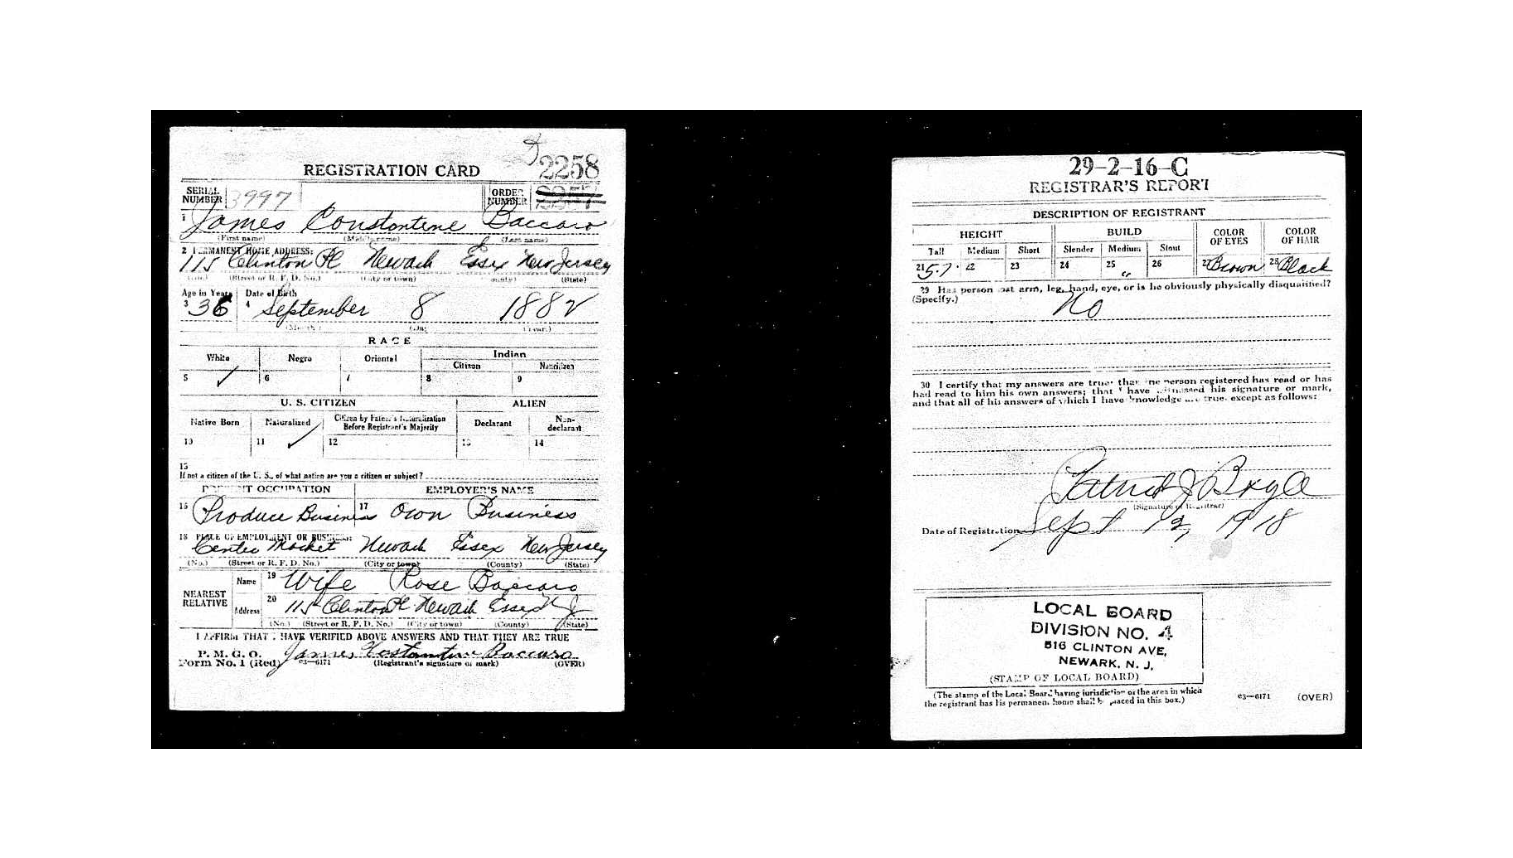 2258
REGISTRATION CARD
SERIAL NUMBER 3997 ORDER NUMBER
1 James Constantine Baccaro
(First name) (Middle name) (Last name)
2 PERMANENT HOME ADDRESS:
115 Clinton Pl Newark Essex New Jersey
(No.) (Street or R. F. D. No.) (City or town) (County) (State)
Age in Years Date of Birth
3 36 4 September 8 1882
(Month) (Day) (Year)
RACE
White Negro Oriental Indian
Citizen Noncitizen
5 ✓ 6 7 8 9
U. S. CITIZEN ALIEN
Native Born Naturalized Citizen by Father's Naturalization Before Registrant's Majority Declarant Non-declarant
10 11 ✓ 12 13 14
15
If not a citizen of the U. S., of what nation are you a citizen or subject?
PRESENT OCCUPATION EMPLOYER'S NAME
16 Produce Business 17 Own Business
18 PLACE OF EMPLOYMENT OR BUSINESS:
Centre Market Newark Essex New Jersey
(No.) (Street or R. F. D. No.) (City or town) (County) (State)
NEAREST RELATIVE
Name 19 Wife Rose Baccaro
Address 20 115 Clinton Pl Newark Essex N J
(No.) (Street or R. F. D. No.) (City or town) (County) (State)
I AFFIRM THAT I HAVE VERIFIED ABOVE ANSWERS AND THAT THEY ARE TRUE
P. M. G. O.
Form No. 1 (Red) 03—6171 James Constantine Baccaro
(Registrant's signature or mark) (OVER)
29-2-16-C
REGISTRAR'S REPORT
DESCRIPTION OF REGISTRANT
HEIGHT BUILD COLOR OF EYES COLOR OF HAIR
Tall Medium Short Slender Medium Stout
21 5-7 22 23 24 25 26 27 Brown 28 Black
29 Has person lost arm, leg, hand, eye, or is he obviously physically disqualified?
(Specify.) No
30 I certify that my answers are true; that the person registered has read or has
had read to him his own answers; that I have witnessed his signature or mark,
and that all of his answers of which I have knowledge are true, except as follows:
Patrick J Boyle
(Signature of Registrar)
Date of Registration Sept 12, 1918
LOCAL BOARD
DIVISION NO. 4
516 CLINTON AVE,
NEWARK, N. J.
(STAMP OF LOCAL BOARD)
(The stamp of the Local Board having jurisdiction of the area in which
the registrant has his permanent home shall be placed in this box.)
03—6171 (OVER)